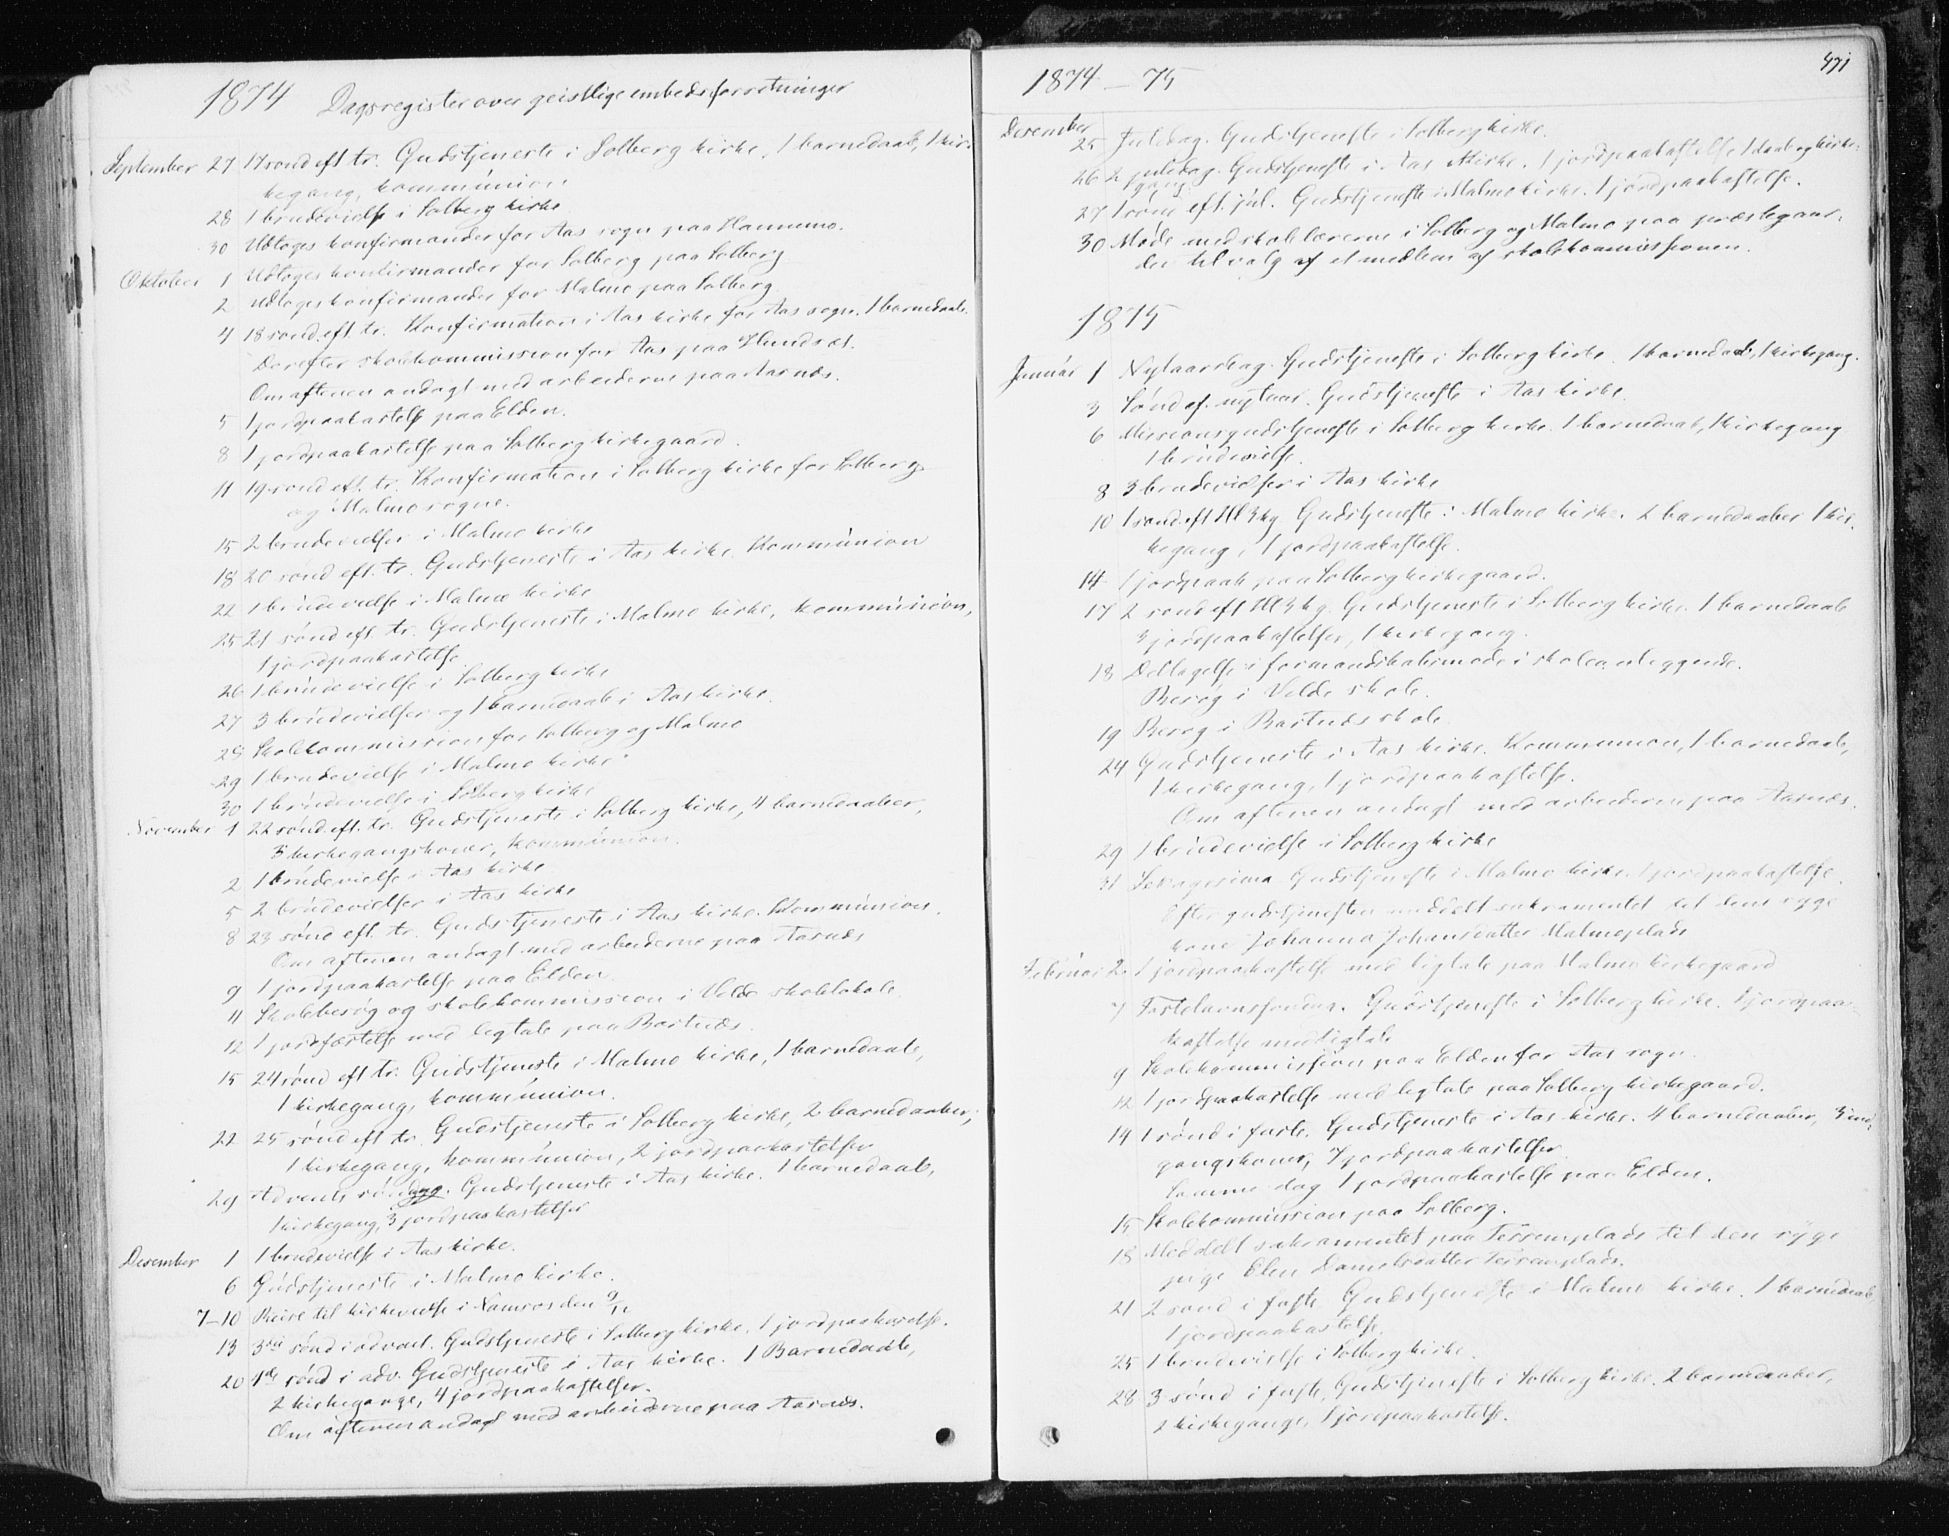 1874 Dagsregister over geistlige embedsforretninger
September 27 17 sønd eft tr. Gudstjeneste i Solberg kirke, 1 barnedaab, 1 kir-
kegang, kommúnion
28 1 brudevielse i Solberg kirke
30 Udtoges konfirmander for Aas sogn paa Hannemo.
Oktober 1 Udtoges konfirmander for Solberg paa Solberg
2 Udtoges konfirmander for Malmo paa Solberg
4 18 sønd. eft. tr. Konfirmation i Aas kirke for Aas sogn. 1 barnedaab.
Derefter skolekommission for Aas paa
Om aftenen andagt med arbeiderne paa Aarnæs.
5 1 jordpaakastelse paa Elden.
8 1 jordpaakastelse paa Solberg kirkegaard.
11 19 sønd eft. tr. Konfirmation i Solberg kirke for Solberg
og Malmo sogne.
15 2 brudevielser i Malmo kirke
18 20 sønd eft. tr. Gudstjeneste i Aas kirke. Kommúnion
22 1 brúdevielse i Malmo kirke
25 21 sønd eft. tr. Gudstjeneste i Malmo kirke, kommúnion,
1 jordpaakastelse
26 1 brúdevielse i Solberg kirke
27 3 brúdevielser og 1 barnedaab i Aas kirke.
28 Skolekommission for Solberg og Malmo
29 1 brudevielse i Malmo kirke
30 1 brúdevielse i Solberg kirke
November 1 22 sønd. eft. tr. Gudstjeneste i Solberg kirke, 4 barnedaaber,
3 kirkegangskoner, kommúnion.
2 1 brúdevielse i Aas kirke
5 2 brúdevielser i Aas kirke
8 23 sønd eft. tr. Gudstjeneste i Aas kirke. Kommúnion.
Om aftenen andagt med arbeiderne paa Aarnæs
9 1 jordpaakastelse paa Elden.
11 Skolebesøg og skolekommission i Velde skolelokale
12 1 jordfæstelse med ligtale paa Bartnæs.
15 24 sønd eft tr. Gúdstjeneste i Malmo kirke, 1 barnedaab,
1 kirkegang, kommúnion.
22 25 sønd eft tr. Gudstjeneste i Solberg kirke, 2 barnedaaber,
1 kirkegang, kommúnion, 2 jordpaakastelser
29 Advents søndag. Gudstjeneste i Aas kirke. 1 barnedaab,
1 kirkegang, 3 jordpaakastelser
Desember 1 1 brudevielse i Aas kirke.
6 Gúdstjeneste i Malmo kirke.
7-10 Reise til kirkevielse i Namsos den 9/12
13 3die sønd i advent. Gudstjeneste i Solberg kirke. 1 jordpaakastelse.
20 4de sønd i adv. Gudstjeneste i Aas kirke. 1 Barnedaab,
2 kirkegange, 4 jordpaakastelser.
Om aftenen andagt med arbeiderne paa Aarnæs.
1874-75
471
Desember 25 Juledag. Gudstjeneste i Solberg kirke.
26 2 juledag. Gudstjeneste i Aas kirke. 1 jordpaakastelse 1 daab og kirke-
gang.
27 1 sønd eft. júl. Gudstjeneste i Malmo kirke. 1 jordpaakastelse.
30 Møde med skolelærerne i Solberg og Malmo paa præstegaar-
den til valg af et medlem af skolekommissionen.
1875
Januar 1 Nytaarsdag. Gudstjeneste i Solberg kirke. 1 barnedaab, 1 kirkegang.
3 Sønd ef. nytaar. Gudstjeneste i Aas kirke.
6 Missionsgudstjeneste i Solberg kirke. 1 barnedaab, 1 kirkegang
1 brúdevielse.
8 3 brudevielser i Aas kirke
10 1 sønd. eft H 3 kg Gudstjeneste i Malmo kirke. 2 barnedaaber 1 kir-
kegang, 1 jordpaakastelse.
14 1 jordpaak paa Solberg kirkegaard.
17 2 sønd eft H 3 kg. Gudstjeneste i Solberg kirke. 1 barnedaab
3 jordpaakastelser, 1 kirkegang.
18 Deltagelse i formandskabsmøde i skoleanliggende.
Besøg i Velde skole.
19 Besøg i Bartnæs skole
24 Gudstjeneste i Aas kirke. Kommunion, 1 barnedaab,
1 kirkegang, 1 jordpaakastelse.
Om aftenen andagt med arbeiderne paa Aarnæs.
29 1 brúdevielse i Solberg kirke
31 Seksagesima. Gudstjeneste i Malmo kirke. 1 jordpaakastelse.
Efter gudstjenesten meddelt sakramentet til den syge
kone Johanna Johansdatter Malmoplads
Februar 2 1 jordpaakastelse med ligtale paa Malmo kirkegaard
7 Fastelavnssøndag. Gudstjeneste i Solberg kirke. 1 jordpaa-
kastelse med ligtale
9 Skolekommission paa Elden for Aas sogn.
12 1 jordpaakastelse med ligtale paa Solberg kirkegaard.
14 1 sønd i faste. Gudstjeneste i Aas kirke. 4 barnedaaber, 3 ind-
gangskoner, 7 jordpaakastelser
Samme dag 1 jordpaakastelse paa Elden.
15 Skolekommission paa Solberg.
18 Meddelt sakramentet paa til den syge
pige Elen Danielsdatter
21 2 sønd i faste. Gudstjeneste i Malmo kirke. 1 barnedaab
1 jordpaakastelse.
25 1 brudevielse i Solberg kirke.
28 3 sønd i faste. Gudstjeneste i Solberg kirke. 2 barnedaaber,
2 kirkegange, 1 jordpaakastelse.